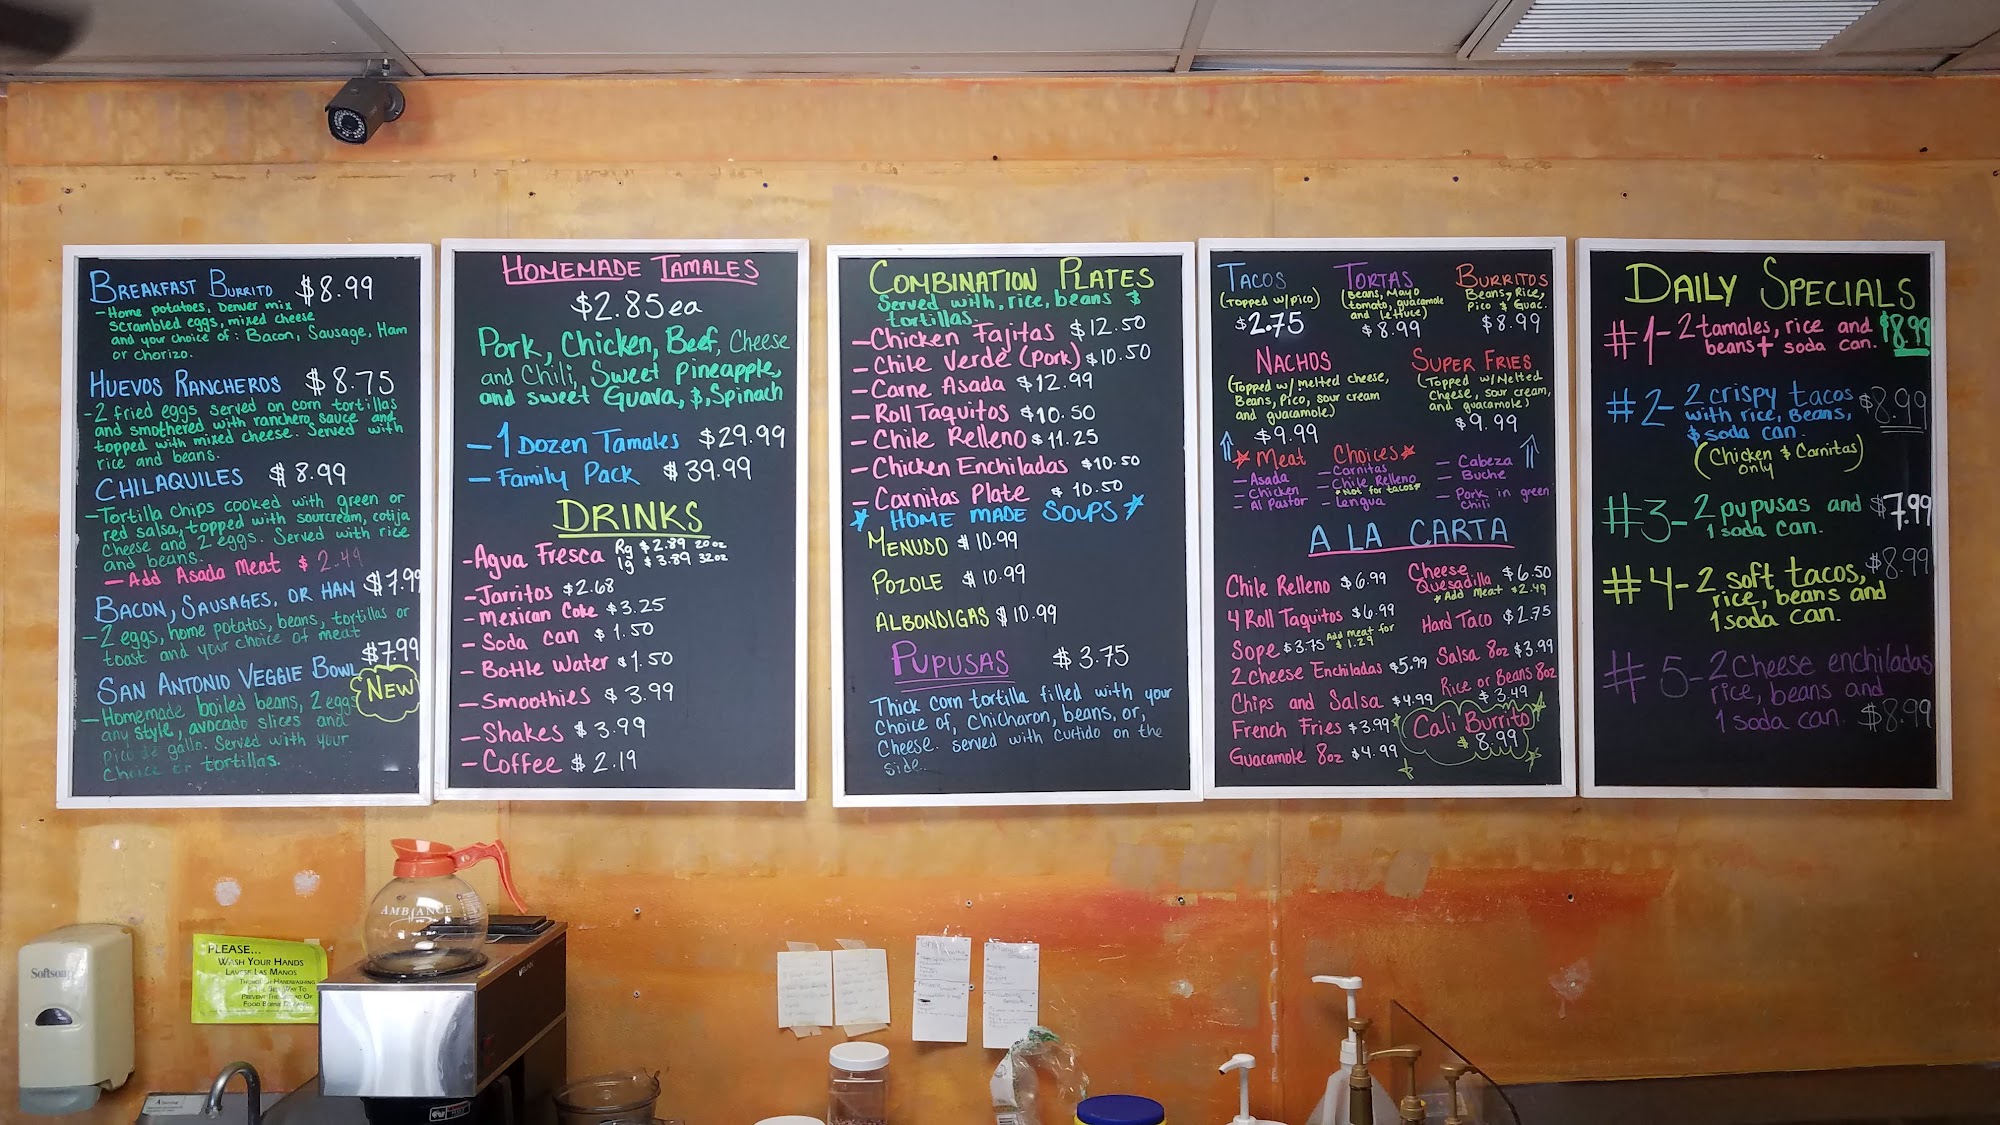 BREAKFAST BURRITO $8.99
- Home potatoes, Denver mix
scrambled eggs, mixed cheese
and your choice of: Bacon, Sausage, Ham
or chorizo.
HUEVOS RANCHEROS $8.75
- 2 fried eggs served on corn tortillas
and smothered with ranchero sauce and
topped with mixed cheese. Served with
rice and beans.
CHILAQUILES $8.99
- Tortilla chips cooked with green or
red salsa, topped with sourcream, cotija
cheese and 2 eggs. Served with rice
and beans.
- Add Asada Meat $2.49
BACON, SAUSAGES, OR HAN $7.99
- 2 eggs, home potatos, beans, tortillas or
toast and your choice of meat
$7.99
SAN ANTONIO VEGGIE BOWL
NEW
- Homemade boiled beans, 2 eggs
any style, avocado slices and
pico de gallo. Served with your
choice or tortillas.
HOMEMADE TAMALES
$2.85ea
Pork, Chicken, Beef, Cheese
and Chili, Sweet Pineapple,
and sweet Guava, $, Spinach
- 1 Dozen Tamales $29.99
- Family Pack $39.99
DRINKS
- Agua Fresca Rg $2.89 20oz
lg $3.89 32oz
- Jarritos $2.68
- Mexican Coke $3.25
- Soda can $1.50
- Bottle Water $1.50
- Smoothies $3.99
- Shakes $3.99
- Coffee $2.19
COMBINATION PLATES
Served with, rice, beans $
tortillas.
- Chicken Fajitas $12.50
- Chile Verde (Pork) $10.50
- Carne Asada $12.99
- Roll Taquitos $10.50
- Chile Relleno $11.25
- Chicken Enchiladas $10.50
- Carnitas Plate $10.50
HOME MADE SOUPS
MENUDO $10.99
POZOLE $10.99
ALBONDIGAS $10.99
PUPUSAS $3.75
Thick corn tortilla filled with your
Choice of, Chicharon, beans, or,
Cheese. served with curtido on the
side.
TACOS
(Topped w/pico)
$2.75
TORTAS
(Beans, Mayo
tomato, guacamole
and lettuce)
$8.99
BURRITOS
Beans, Rice,
Pico $ Guac.
$8.99
NACHOS
(Topped w/ melted cheese,
Beans, Pico, sour cream
and guacamole)
$9.99
SUPER FRIES
(Topped w/ Melted
Cheese, sour cream,
and guacamole)
$9.99
Meat Choices
- Asada
- Chicken
- Al Pastor
- Carnitas
- Chile Relleno
*Not for tacos*
- Lengua
- Cabeza
- Buche
- Pork in green
Chili
A LA CARTA
Chile Relleno $6.99
4 Roll Taquitos $6.99
Sope $3.75 Add meat for
$1.29
2 Cheese Enchiladas $5.99
Chips and Salsa $4.99
French Fries $3.99
Guacamole 8oz $4.99
Cheese
Quesadilla $6.50
* Add Meat $2.49
Hard Taco $2.75
Salsa 8oz $3.99
Rice or Beans 8oz
$3.49
Cali Burrito
$8.99
DAILY SPECIALS
#1- 2 tamales, rice and $8.99
beans + soda can.
#2- 2 crispy tacos $8.99
with rice, Beans,
$ soda can.
(Chicken $ Carnitas)
only
#3- 2 pupusas and $7.99
1 soda can.
$8.99
#4- 2 soft tacos,
rice, beans and
1 soda can.
#5- 2 Cheese enchiladas
rice, beans and
1 soda can. $8.99
Softsoap
PLEASE...
WASH YOUR HANDS
LAVESE LAS MANOS
AMBIANCE
BUNN